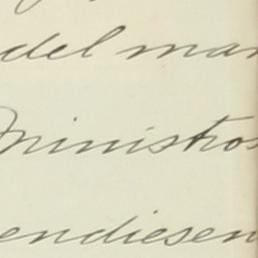 del man
Ministros
endiesen